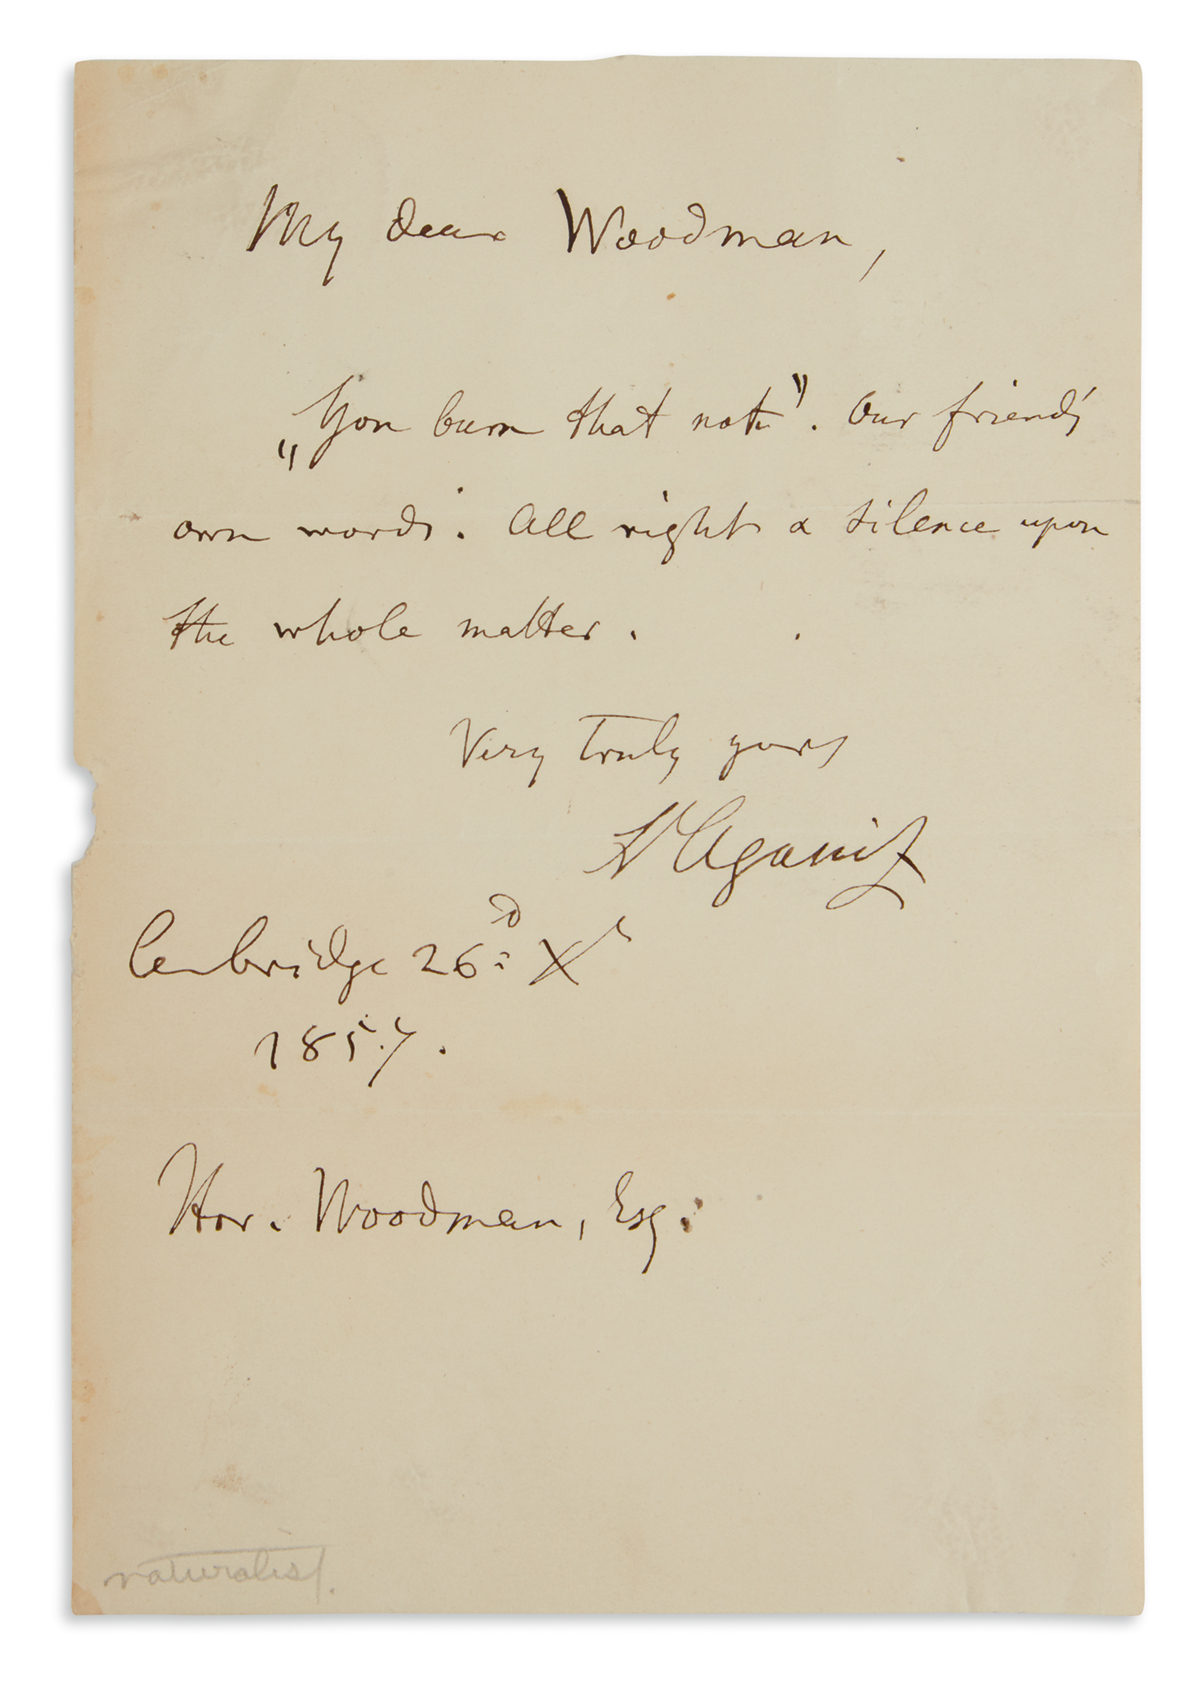 My dear Woodman,
„You burn that note". Our friend's
own words. All right & silence upon
the whole matter.
Very truly yours
Ls Agassiz
Cambridge 26d Xr
1857.
Hor. Woodman, Esq.
naturalist.